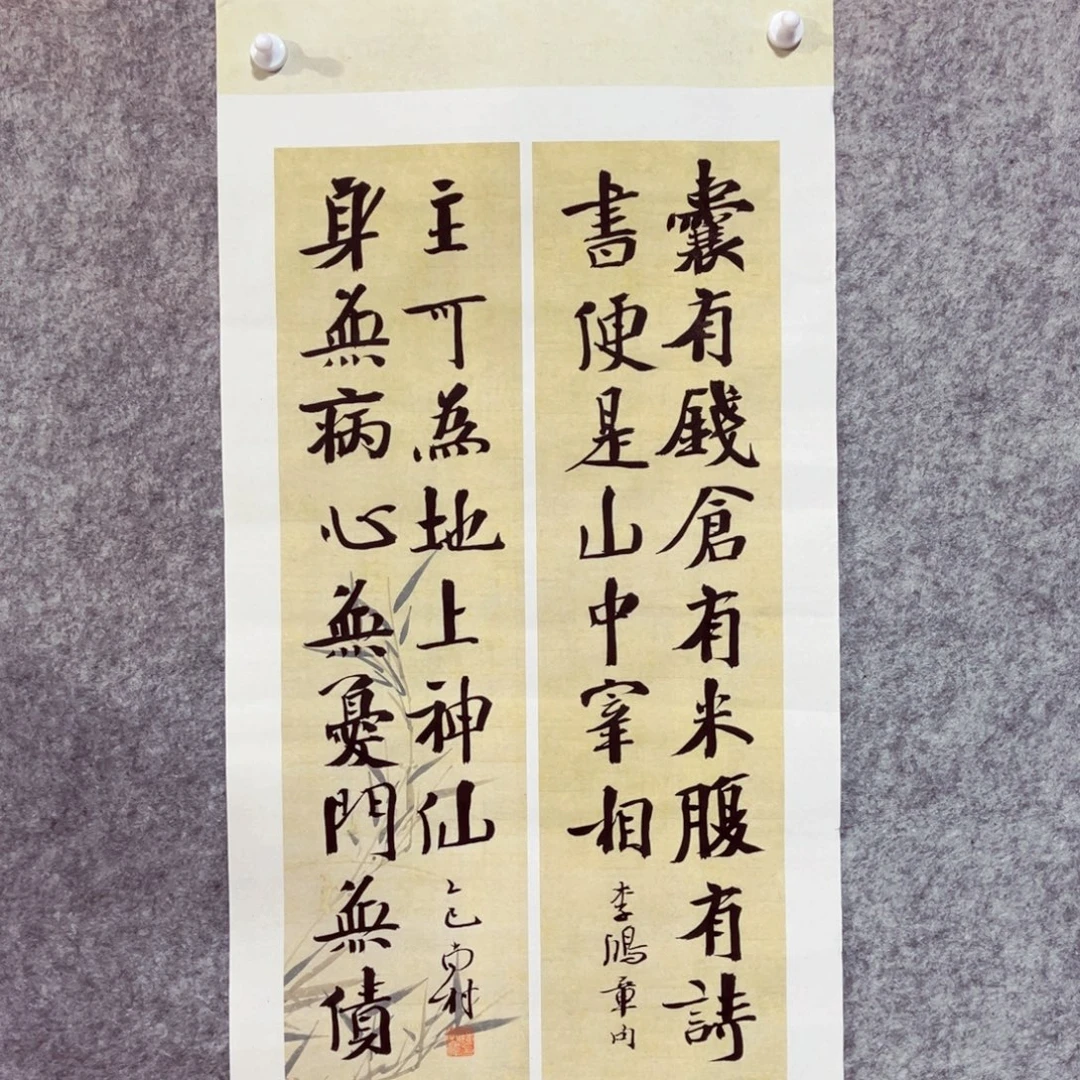 囊有錢倉有米腹有詩
書便是山中宰相
李鴻章句
身無病心無憂門無債
主可為地上神仙
乙巳